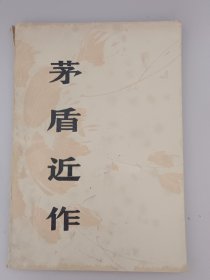 茅盾近作